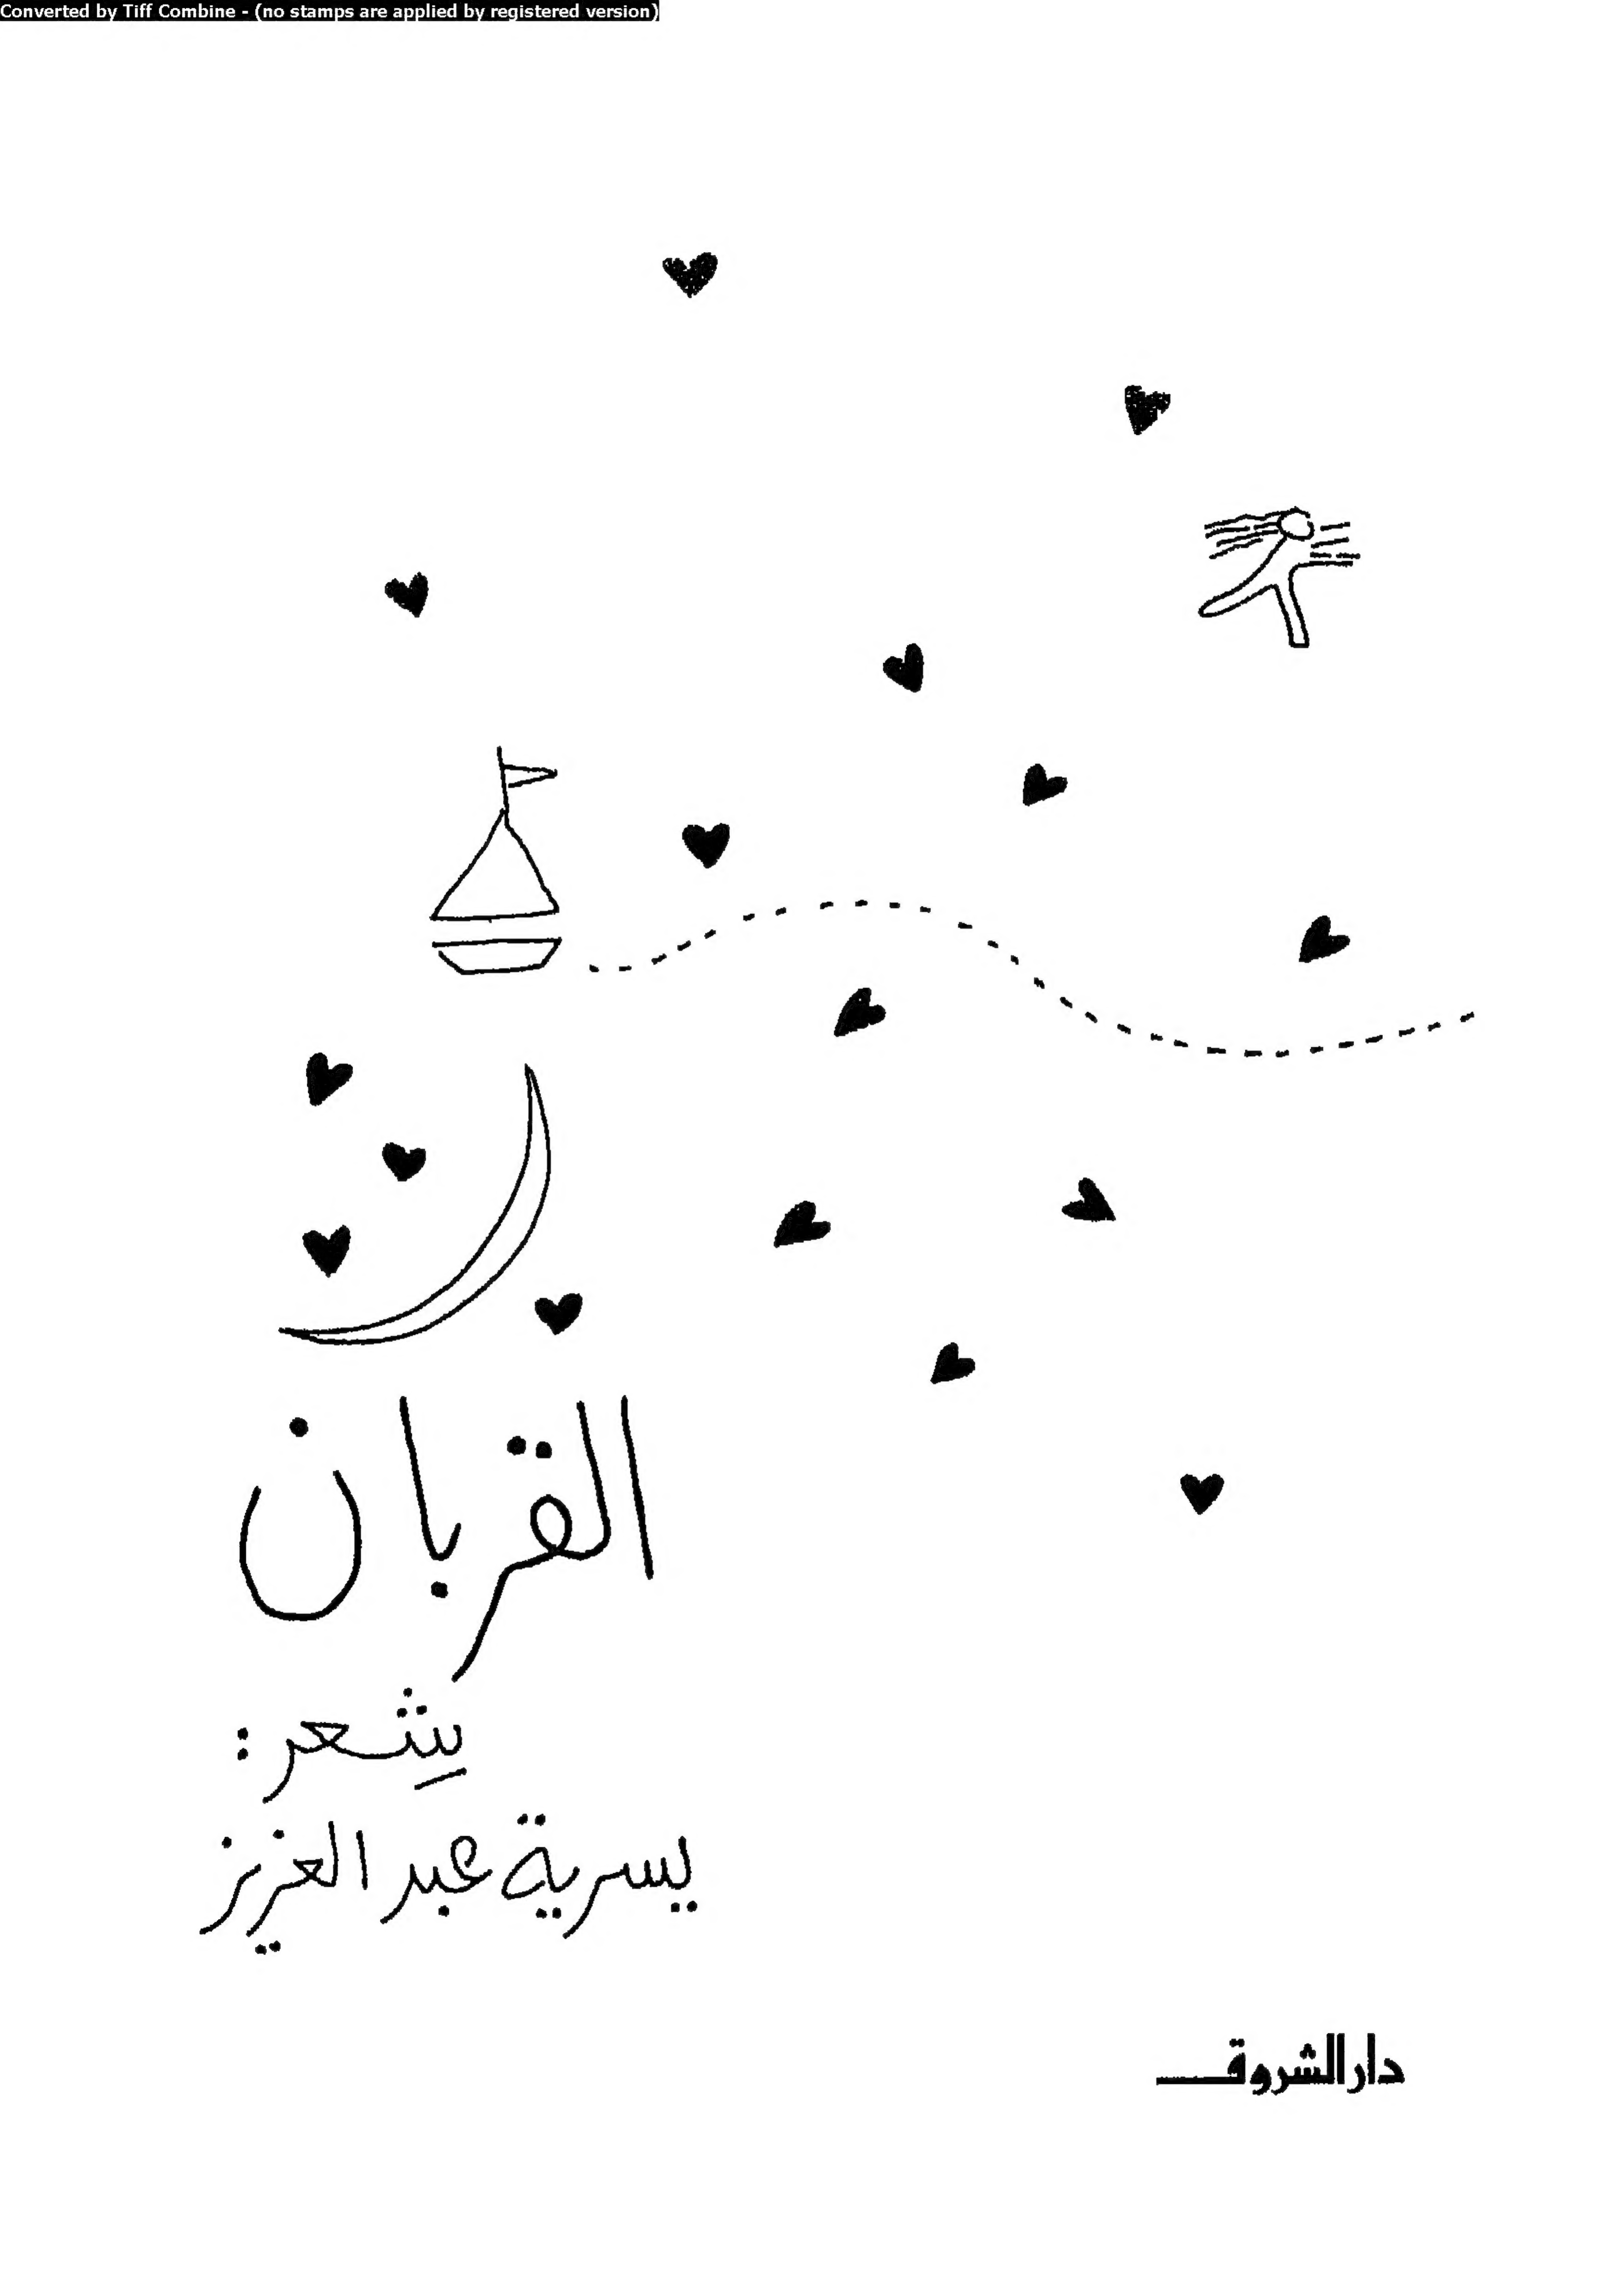 Converted by Tiff Combine - (no stamps are applied by registered version)
القربان
شِعر:
يسرية عبد العزيز
دار الشروق